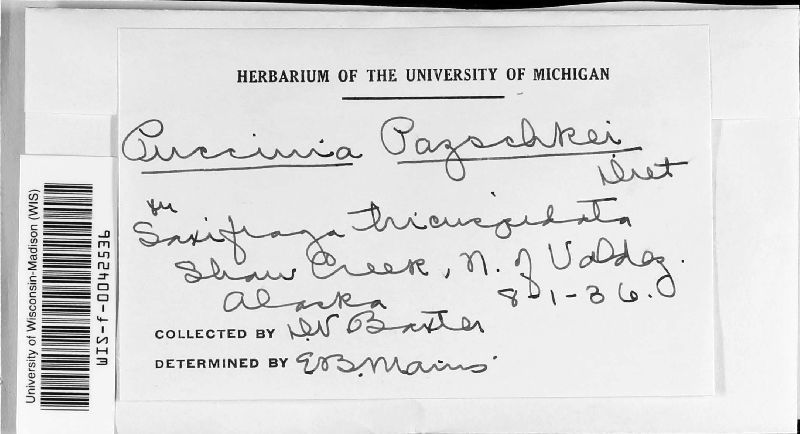 HERBARIUM OF THE UNIVERSITY OF MICHIGAN
Puccinia Pazschkei
Diet
on
Saxifraga tricuspidata
Shaw Creek, N. of Valdez.
Alaska 8-1-36.
COLLECTED BY D.V. Baxter
DETERMINED BY E.B. Mains
University of Wisconsin-Madison (WIS)
WIS-f-0042536